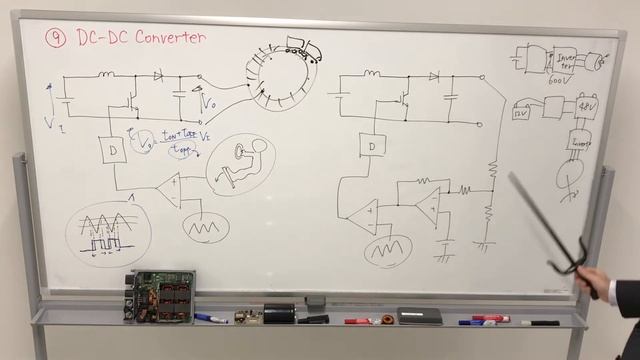 ⑨ DC-DC Converter
V_I
V_O
D
V_o = t_on + t_off / t_off V_I
+
-
D
+
-
+
-
Inverter
600V
12V
48V